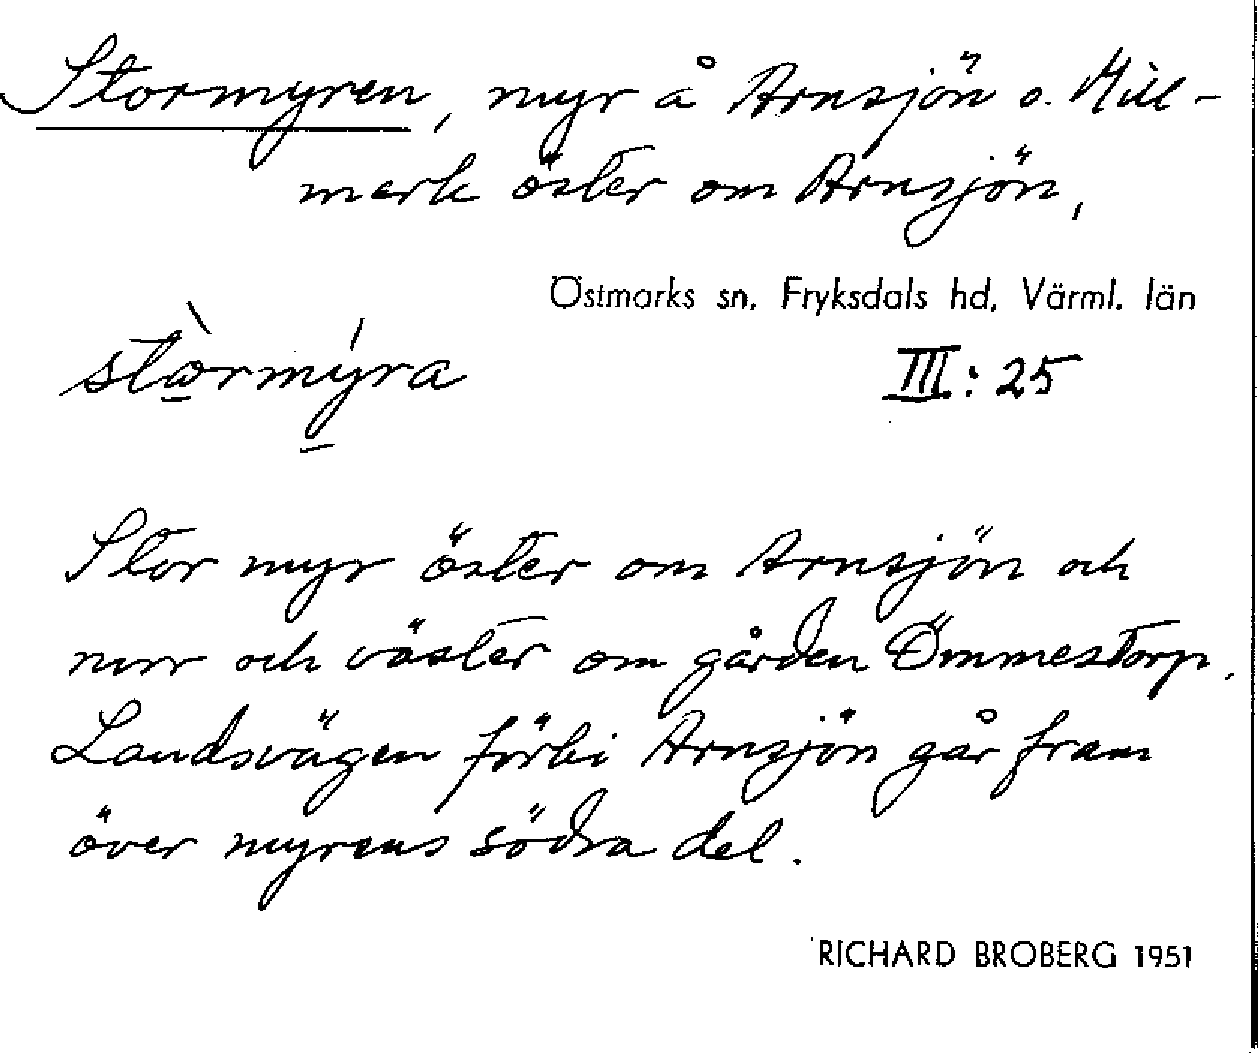 Stormyren, myr å Arnsjön o. Mill-
mark öster om Arnsjön,
Östmarks sn, Fryksdals hd, Värml. län
stòrmýra
III: 25
Stor myr öster om Arnsjön och
norr och väster om gården Ömmestorp.
Landsvägen förbi Arnsjön går fram
över myrens södra del.
RICHARD BROBERG 1951